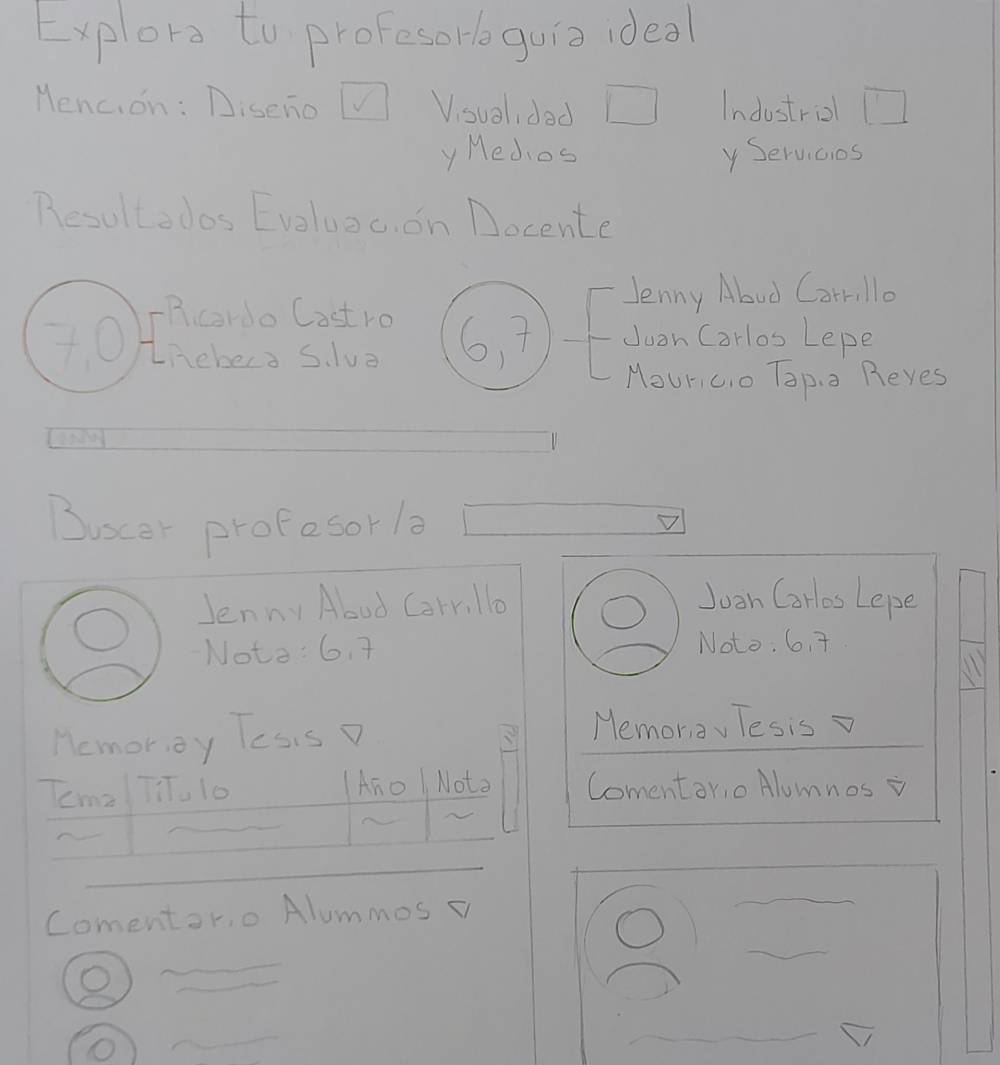 Explora tu profesor/a guía ideal
Mención: Diseño Visualidad y Medios Industrial y Servicios
Resultados Evaluación Docente
7,0
Ricardo Castro
Rebeca Silva
6,7
Jenny Abud Carrillo
Juan Carlos Lepe
Mauricio Tapia Reyes
Buscar profesor/a
Jenny Abud Carrillo
Nota: 6,7
Memoria y Tesis
Tema Título Año Nota
Comentario Alumnos
Juan Carlos Lepe
Nota: 6,7
Memoria y Tesis
Comentario Alumnos